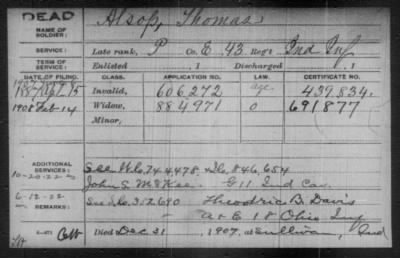 DEAD
NAME OF SOLDIER: Alsop, Thomas
SERVICE: Late rank, P Co. E 43 Reg't Ind Inf
TERM OF SERVICE: Enlisted , 1 Discharged , 1
DATE OF FILING. CLASS. APPLICATION NO. LAW. CERTIFICATE NO.
Invalid, 606,272 age 439,834.
1908 Feb 14 Widow, 884,971 0 691,877
Minor,
ADDITIONAL SERVICES
See 744478. 846,654
10-20-22 John S McKee. G 11 Ind Cav.
6-12-22 See No. 352,690 Theodric B. Davis
REMARKS: A & E 18 Ohio Inf
Died Dec 31 , 1907, at Sullivan, Ind